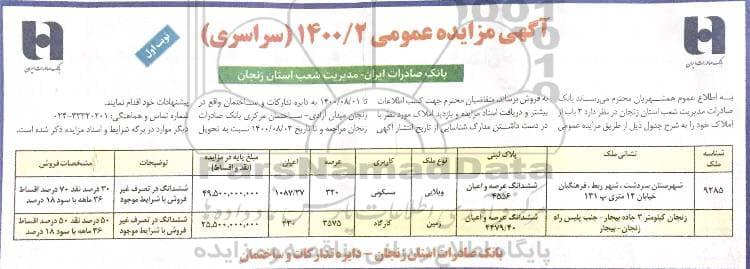 آگهی مزایده عمومی ۱۴۰۰/۲ (سراسری)
نوبت اول
بانک صادرات ایران
بانک صادرات ایران
بانک صادرات ایران- مدیریت شعب استان زنجان
به اطلاع عموم همشهریان محترم می‌رساند بانک
صادرات مدیریت شعب استان زنجان در نظر دارد ۲ باب از
املاک خود را به شرح جدول ذیل از طریق مزایده عمومی
به فروش برساند، متقاضیان محترم جهت کسب اطلاعات
بیشتر و دریافت اسناد مزایده و بازدید املاک مورد نظر با
در دست داشتن مدارک شناسایی از تاریخ انتشار آگهی
تا ۱۴۰۰/۰۸/۰۱ به دایره تدارکات و ساختمان واقع در
زنجان میدان آزادی- ساختمان مرکزی بانک صادرات
زنجان مراجعه و تا تاریخ ۱۴۰۰/۰۸/۰۲ نسبت به تحویل
پیشنهادات خود اقدام نمایند.
شماره تماس و هماهنگی: ۳۳۳۲۰۲۰۱-۰۲۴
دیگر موارد در برگه شرایط و اسناد مزایده ذکر شده است.
شناسه ملک نشانی ملک پلاک ثبتی نوع ملک کاربری عرصه اعیان مبلغ پایه در مزایده (نقد و اقساط) توضیحات مشخصات فروش
۹۲۸۵ شهرستان سردشت، شهر ربط، فرهنگیان خیابان ۱۲ متری پ ۱۳۱ ششدانگ عرصه و اعیان ۴۵۵۶ ویلایی مسکونی ۳۲۰ ۱۰۸۷/۳۷ ۴۹,۵۰۰,۰۰۰,۰۰۰ ششدانگ در تصرف غیر فروش با شرایط موجود ۳۰ درصد نقد ۷۰ درصد اقساط ۳۶ ماهه با سود ۱۸ درصد
زنجان کیلومتر ۳ جاده بیجار- جنب پلیس راه زنجان- بیجار ششدانگ عرصه و اعیان ۴۴۷۹/۴۰ زمین کارگاه ۳۵۷۵ ۴۳۰ ۲۵,۵۰۰,۰۰۰,۰۰۰ ششدانگ در تصرف غیر فروش با شرایط موجود ۵۰ درصد نقد ۵۰ درصد اقساط ۳۶ ماهه با سود ۱۸ درصد
بانک صادرات استان زنجان - دایره تدارکات و ساختمان
ParsNamadData
پایگاه اطلاع رسانی مناقصه و مزایده